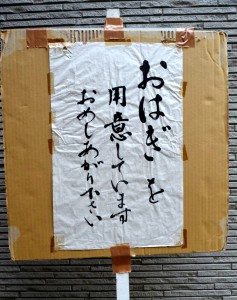 おはぎを
用意しています
おめしあがり下さい